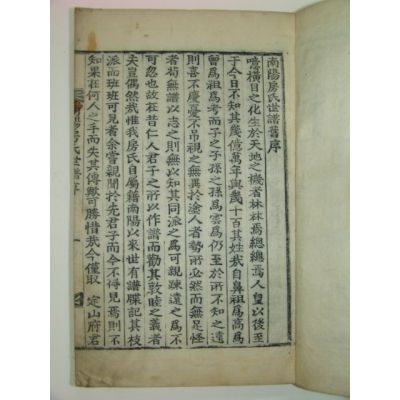 南陽房氏世譜舊序
噫橫目之化生於天地之機者林林焉總總焉人皇以後至
于今日不知其幾億萬年與幾十百其姓我自鼻祖爲高爲
曾爲祖爲考而子之子孫之孫爲雲爲仍至於所不知之遠
則喜不慶憂不吊視之無異於塗人者勢所必然而無足怪
者苟無譜以志之則無以知其同派之爲可親疎遠之爲不
可忽也故在昔仁人君子之所以作譜而勸其敦睦之義者
夫豈偶然哉惟我房自屬籍南陽以來世有譜牒記其枝
派而班班可見者余嘗親聞於先君子而今不得見焉則不
知果在何人之手而失其傳歟可勝惜哉今僅取 定山府君